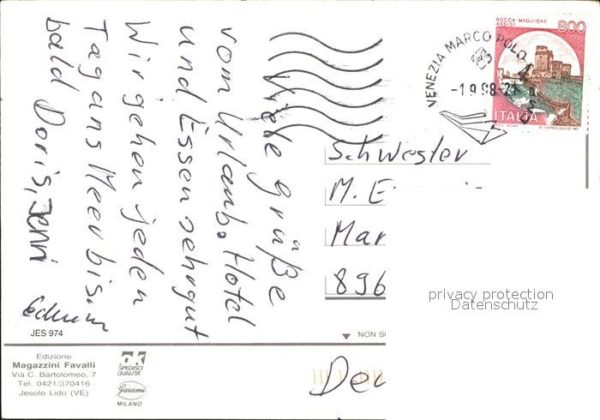 Viele Grüße
vom Urlaub. Hotel
und Essen sehr gut
Wir gehen jeden
Tag ans Meer bis
bald Doris, Jenni
JES 974
Edizione
Magazzini Favalli
Via C. Bartolomeo, 7
Tel. 0421/370416
Jesolo Lido (VE)
OK
SPEDISCI
QUALITÀ
Garami
MILANO
NON S
ROCCA MAGGIORE
ASSISI
800
ITALIA
VENEZIA MARCO POLO
-1.9.98-21
Schwester
M. E
Mar
896
privacy protection
Datenschutz